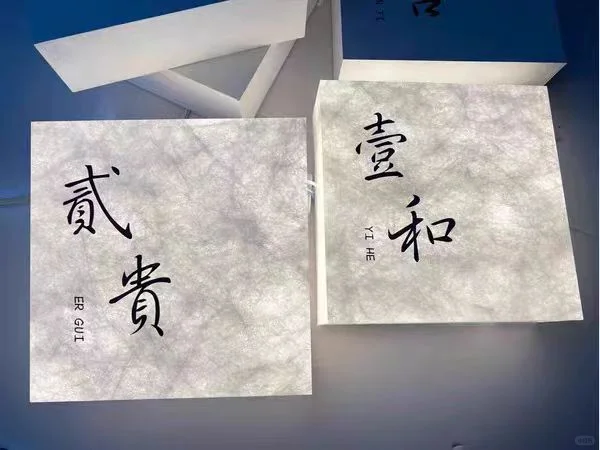 貳貴
ER GUI
壹和
YI HE